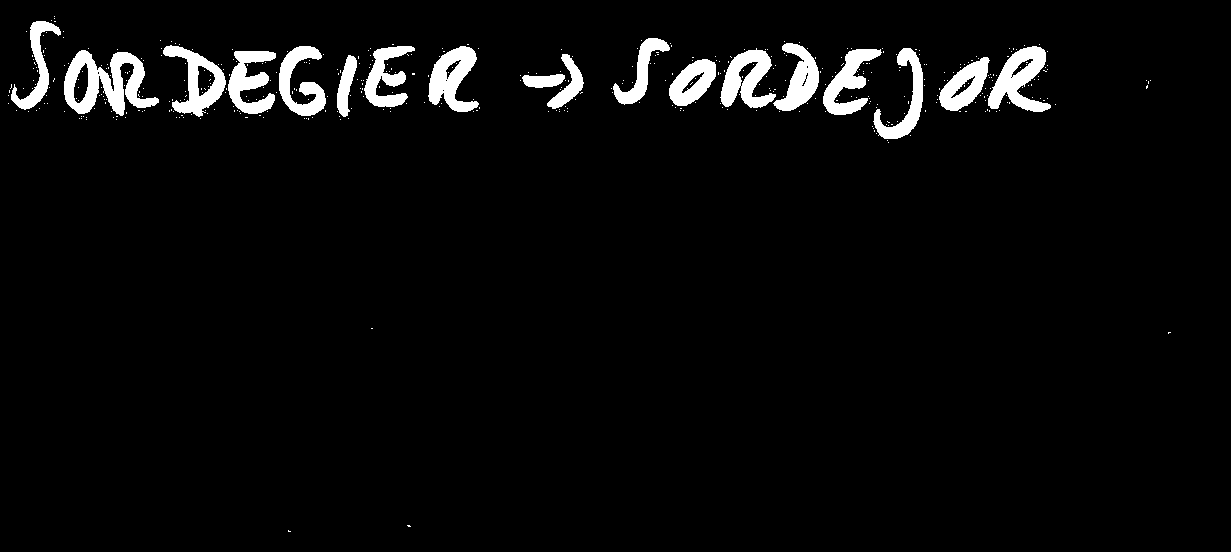 SORDEGIER → SORDEJOR